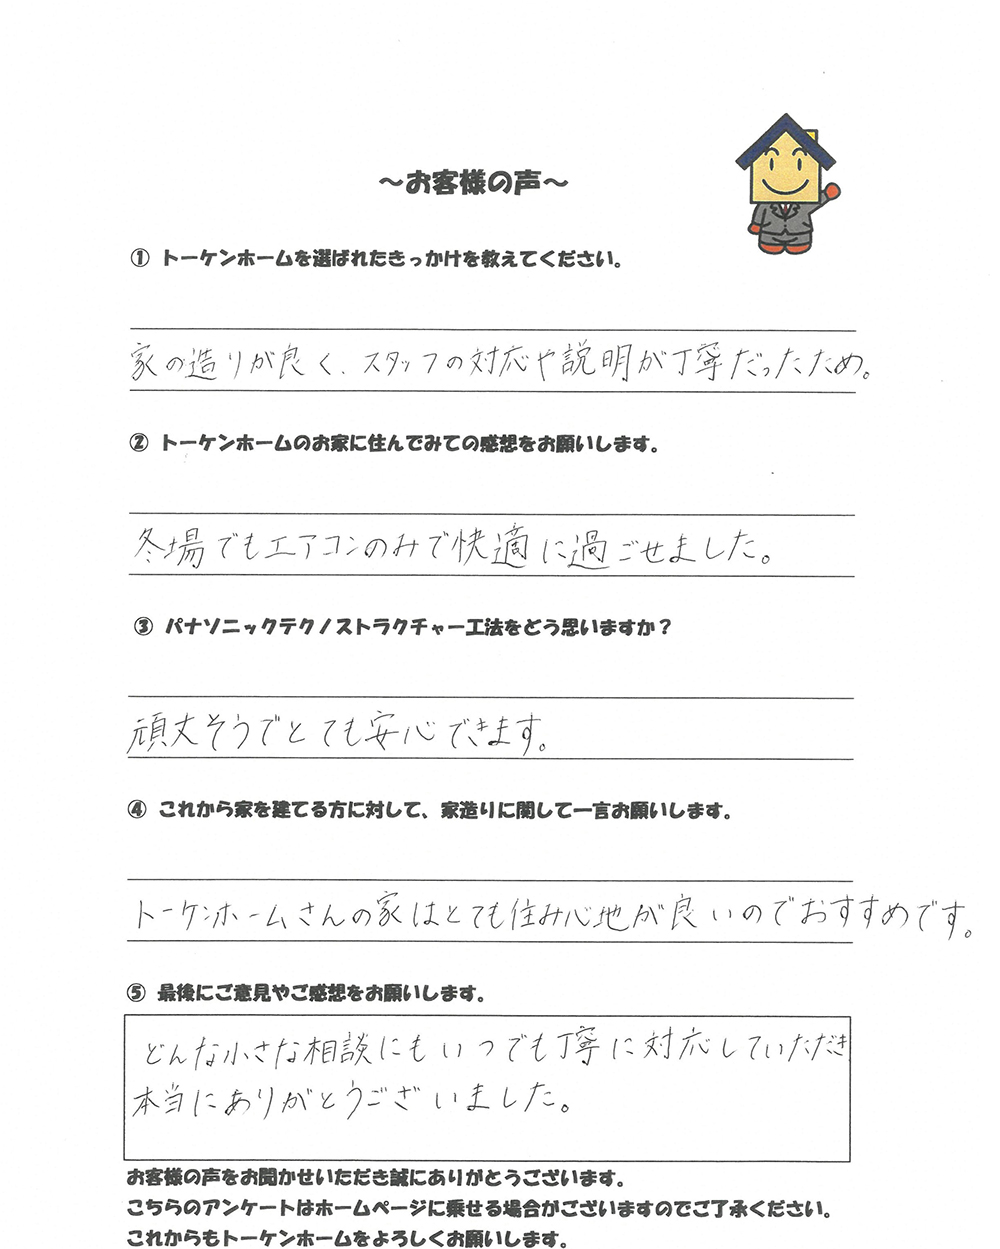 ～お客様の声～
① トーケンホームを選ばれたきっかけを教えてください。
家の造りが良く、スタッフの対応や説明が丁寧だったため。
② トーケンホームのお家に住んでみての感想をお願いします。
冬場でもエアコンのみで快適に過ごせました。
③ パナソニックテクノストラクチャー工法をどう思いますか？
頑丈そうでとても安心できます。
④ これから家を建てる方に対して、家造りに関して一言お願いします。
トーケンホームさんの家はとても住み心地が良いのでおすすめです。
⑤ 最後にご意見やご感想をお願いします。
どんな小さな相談にもいつでも丁寧に対応していただき
本当にありがとうございました。
お客様の声をお聞かせいただき誠にありがとうございます。
こちらのアンケートはホームページに乗せる場合がございますのでご了承ください。
これからもトーケンホームをよろしくお願いします。